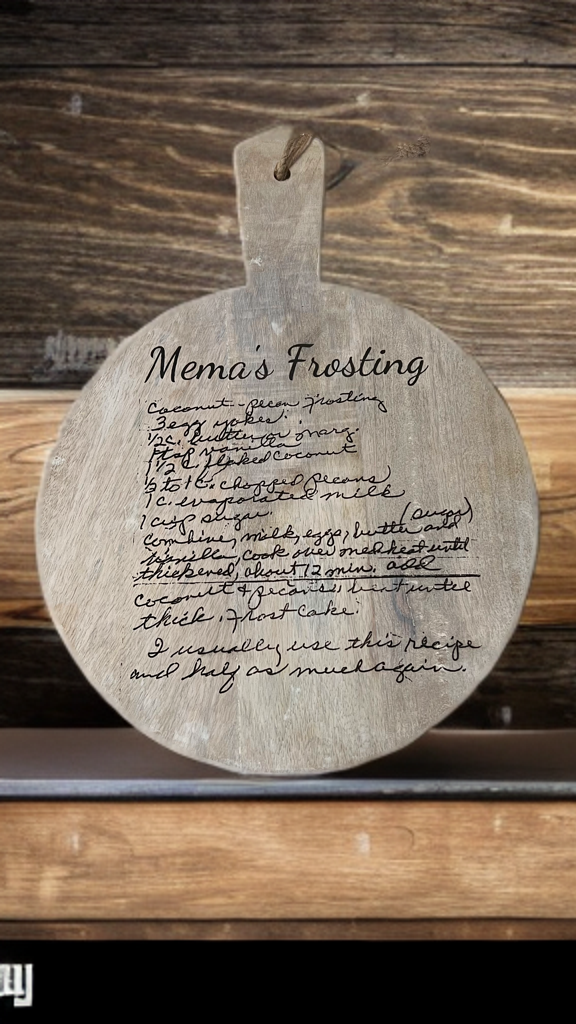 Mema's Frosting
Coconut-pecan Frosting
3 egg yokes.
1/2 c. butter or marg.
1 tsp vanilla
1 1/2 c flaked coconut
to 1 c. chopped pecans
1 c. evaporated milk
1 cup sugar.
(sugar)
Combine, milk, eggs, butter and
vanilla, cook over med heat until
thickened, about 12 min. add
coconut & pecans, beat until
thick. Frost Cake.
I usually use this recipe
and half as much again.